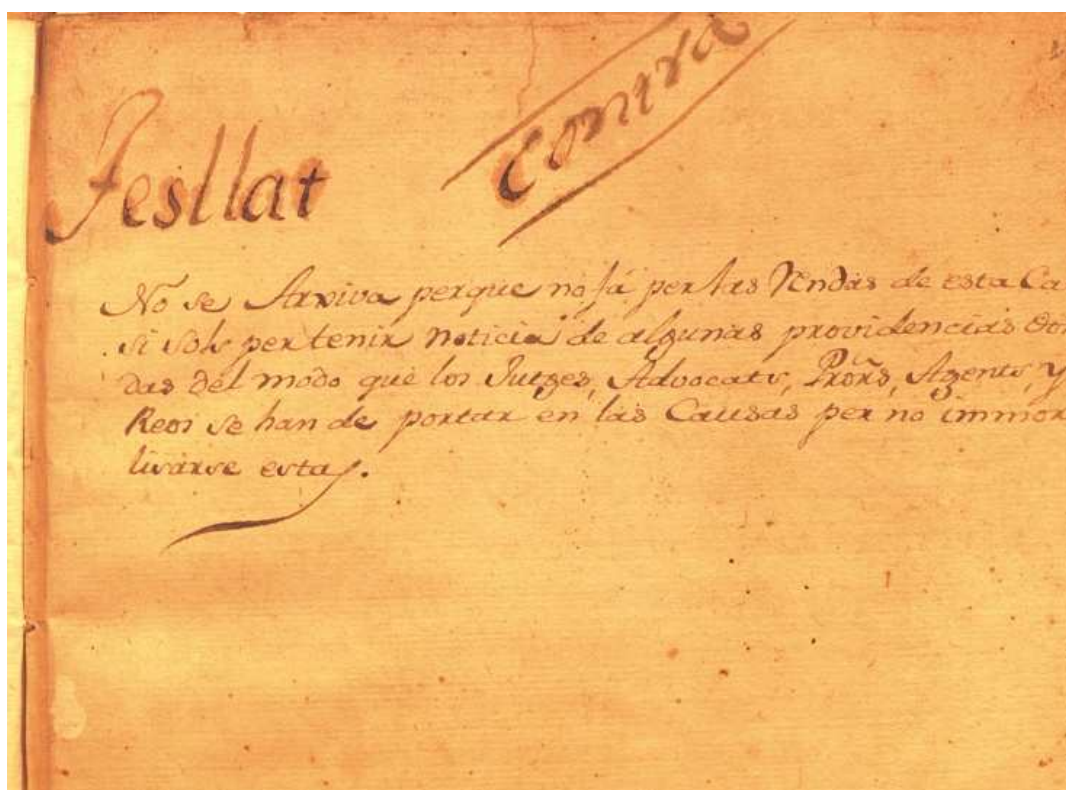 Contra
Fesllat
No se Arxiva perque no fá per las Rendas de esta Ca
si sols per tenir noticia de algunas providencias do
das del modo que los Jutges, Advocats, Prors, Agents, y
Reos se han de portar en las Causas per no immor
lisarse estas.